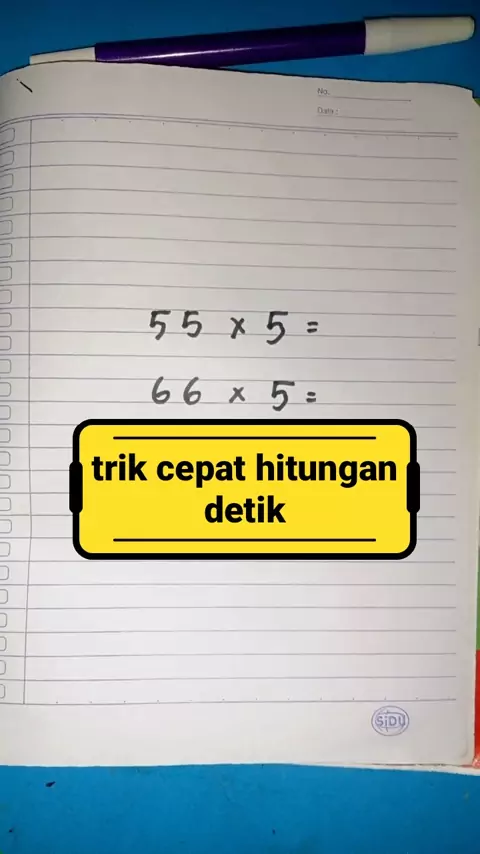 No.
Date:
55 x 5 =
66 x 5 =
trik cepat hitungan
detik
SiDU